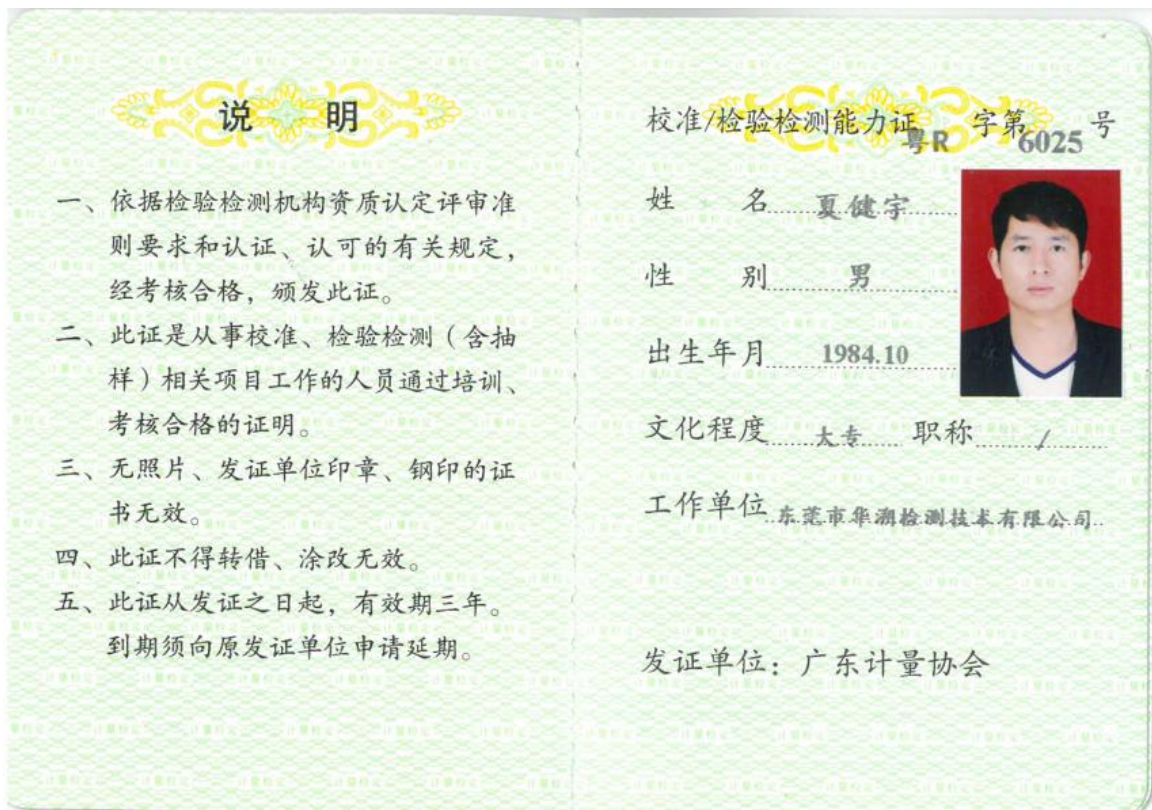 说 明
一、依据检验检测机构资质认定评审准
则要求和认证、认可的有关规定，
经考核合格，颁发此证。
二、此证是从事校准、检验检测（含抽
样）相关项目工作的人员通过培训、
考核合格的证明。
三、无照片、发证单位印章、钢印的证
书无效。
四、此证不得转借、涂改无效。
五、此证从发证之日起，有效期三年。
到期须向原发证单位申请延期。
校准/检验检测能力证粤R 字第6025号
姓 名 夏健宇
性 别 男
出生年月 1984.10
文化程度 大专 职称 /
工作单位 东莞市华溯检测技术有限公司
发证单位：广东计量协会